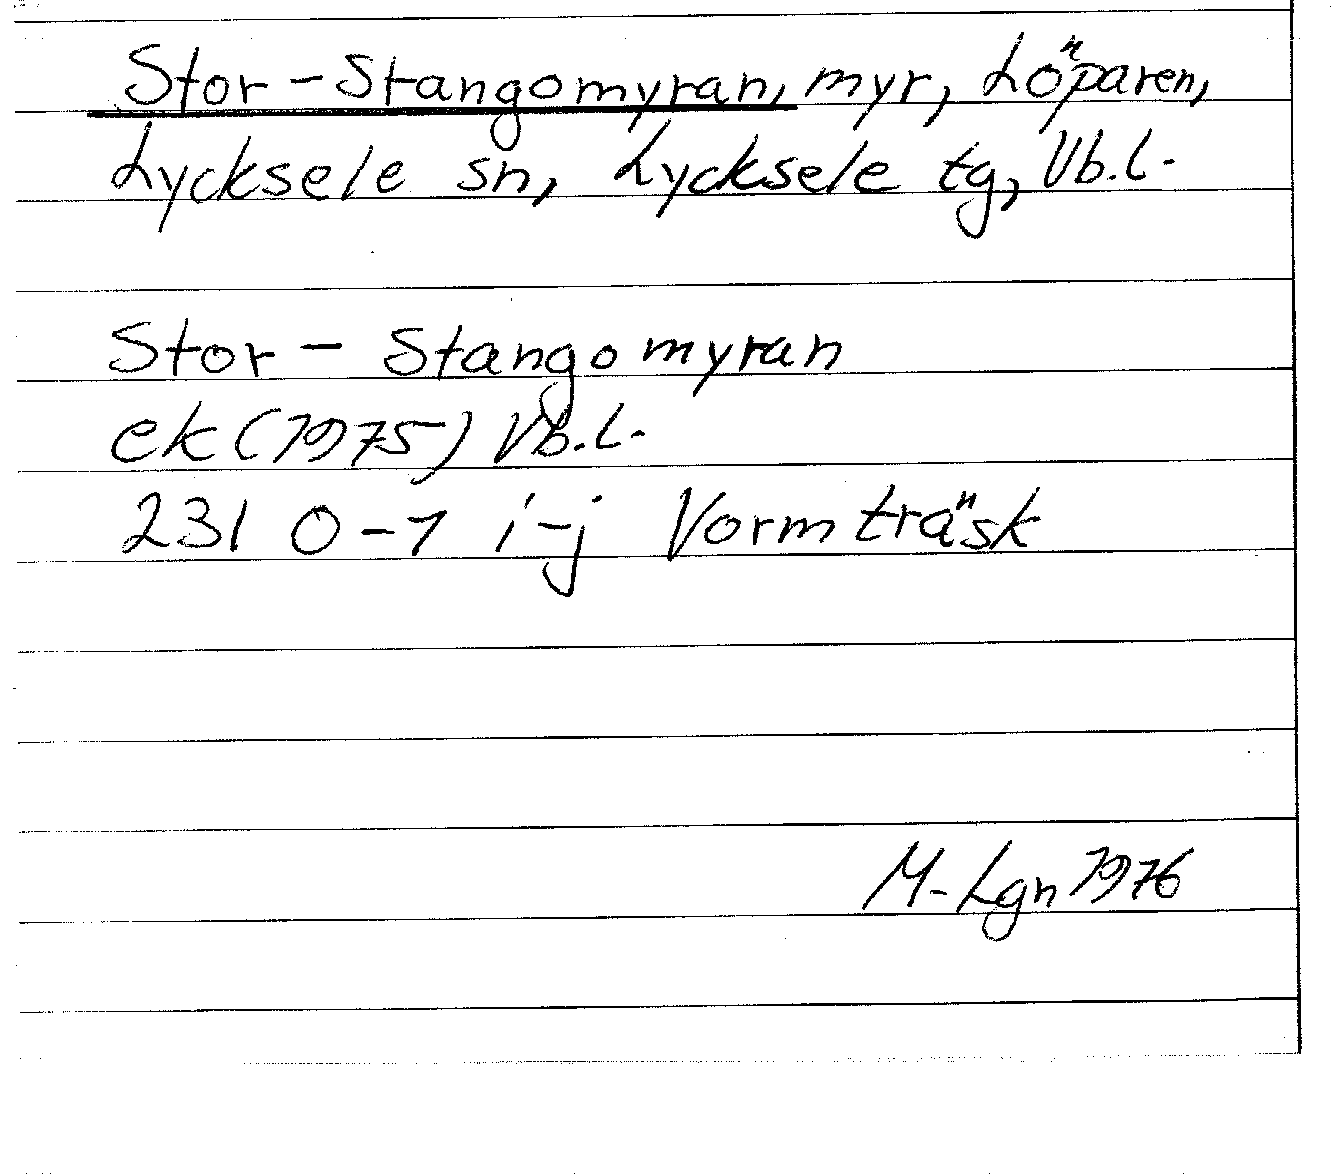 Stor-Stangomyran, myr, Löparen,
Lycksele sn, Lycksele tg, Vb.l.
Stor-Stangomyran
ek(1975) Vb.l.
23I 0-1 i-j Vormträsk
M-Lgn 1976